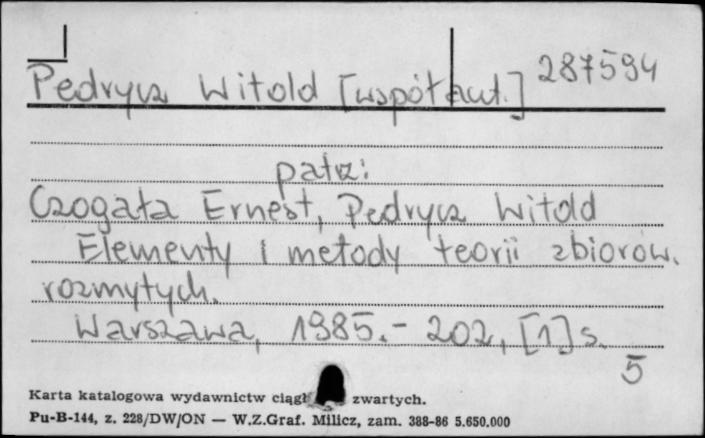 Pedrycz Witold [współaut.] 287594
patrz:
Czogała Ernest, Pedrycz Witold
Elementy i metody teorii zbiorów.
rozmytych.
Warszawa, 1985.- 202, [1] s.
5
Karta katalogowa wydawnictw ciągł zwartych.
Pu-B-144, z. 228/DW/ON — W.Z.Graf. Milicz, zam. 388-86 5.650.000